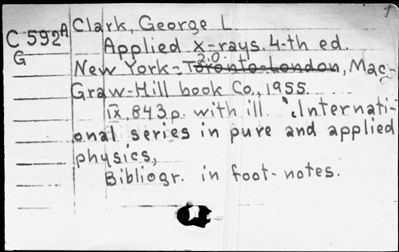 C 592 A Clark, George L.
G Applied x-rays. 4-th ed.
New York - Toronto-London, Mac-
Graw-Hill book Co., 1955.
IX, 843 p. with ill. "Internati-
onal series in pure and applied
physics,
Bibliogr. in foot-notes.